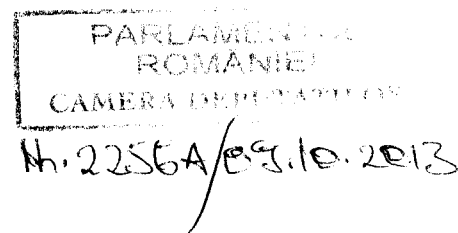 PARLAMENTUL
ROMÂNIEI
CAMERA DEPUTAȚILOR
Nr. 2256A/09.10.2013